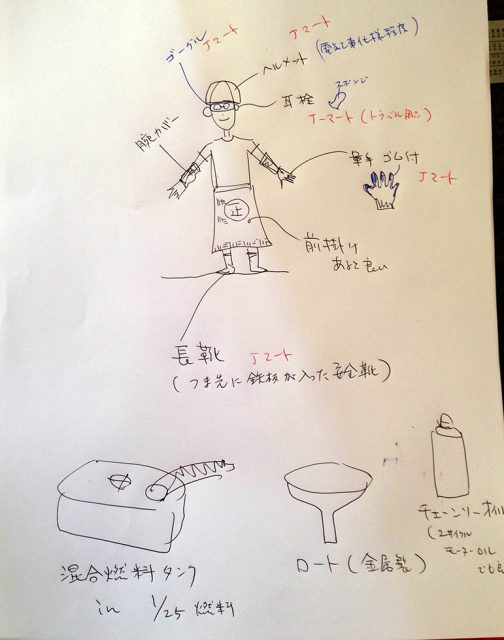 ゴーグル Jマート
Jマート
ヘルメット (電気工事仕様程度)
耳栓
スポンジ
Jーマート(トラベル用)
腕カバー
軍手 ゴム付
Jマート
止
前掛け
あると良い
長靴 Jマート
(つま先に鉄板が入った安全靴)
混合燃料タンク
in 1/25 燃料
ロート(金属製)
チェーンソーオイル
(2サイクル
モーターOIL
でも